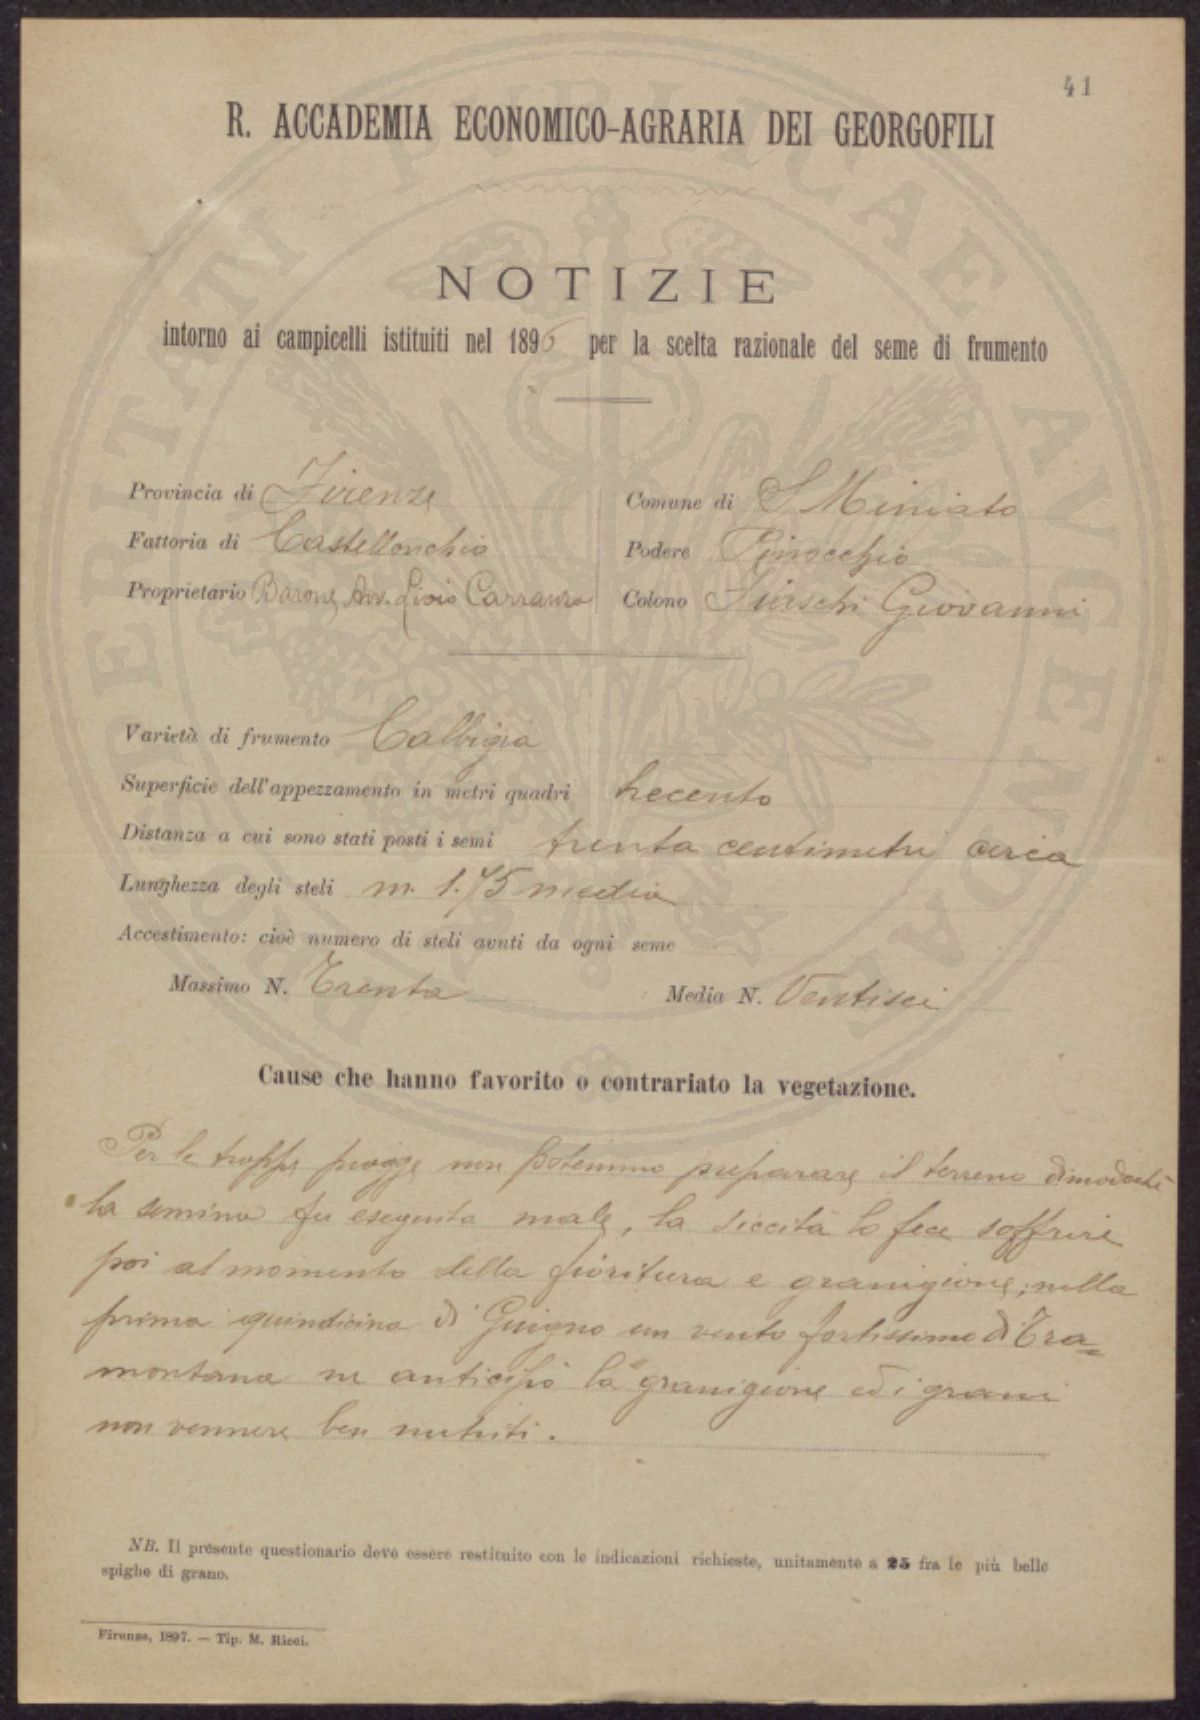 41
R. ACCADEMIA ECONOMICO-AGRARIA DEI GEORGOFILI
NOTIZIE
intorno ai campicelli istituiti nel 1896 per la scelta razionale del seme di frumento
Provincia di Firenze
Comune di S Miniato
Fattoria di Castellonchio
Podere Pinocchio
Proprietario Barone Avv. Livio Carranza
Colono Giovanni
Varietà di frumento Calbigia
Superficie dell'appezzamento in metri quadri trecento
Distanza a cui sono stati posti i semi trenta centimetri circa
Lunghezza degli steli m. 1.45 media
Accestimento: cioè numero di steli avuti da ogni seme
Massimo N. Trenta
Media N. Ventisei
Cause che hanno favorito o contrariato la vegetazione.
Per le troppe piogge non potemmo preparare il terreno dimodochè
la semina fu eseguita male, la siccità lo fece soffrire
poi al momento della fioritura e granigione; nella
prima quindicina di Giugno un vento fortissimo di Tra=
montana ne anticipò la granigione ed i grani
non vennere ben nutriti.
NB. Il presente questionario deve essere restituito con le indicazioni richieste, unitamente a 25 fra le più belle
spighe di grano.
Firenze, 1897. — Tip. M. Ricci.
PROSPERITATI PUBLICAE AVGENDAE